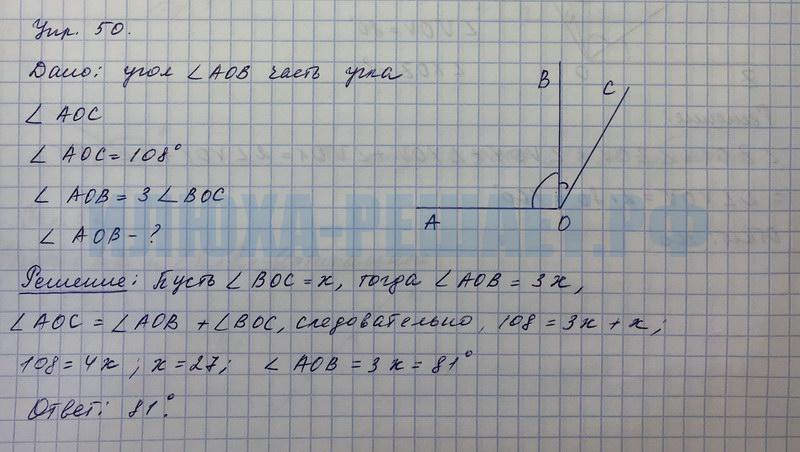 Упр. 50.
Дано: угол ∠AOB часть угла
∠ AOC
∠ AOC = 108°
∠ AOB = 3 ∠ BOC
∠ AOB - ?
B
C
A
O
ИЛЮХА-РЕШАЕТ.РФ
Решение: Пусть ∠ BOC = x, тогда ∠ AOB = 3x,
∠AOC = ∠AOB + ∠BOC, следовательно, 108 = 3x + x;
108 = 4x ; x = 27; ∠ AOB = 3x = 81°
Ответ: 81°.